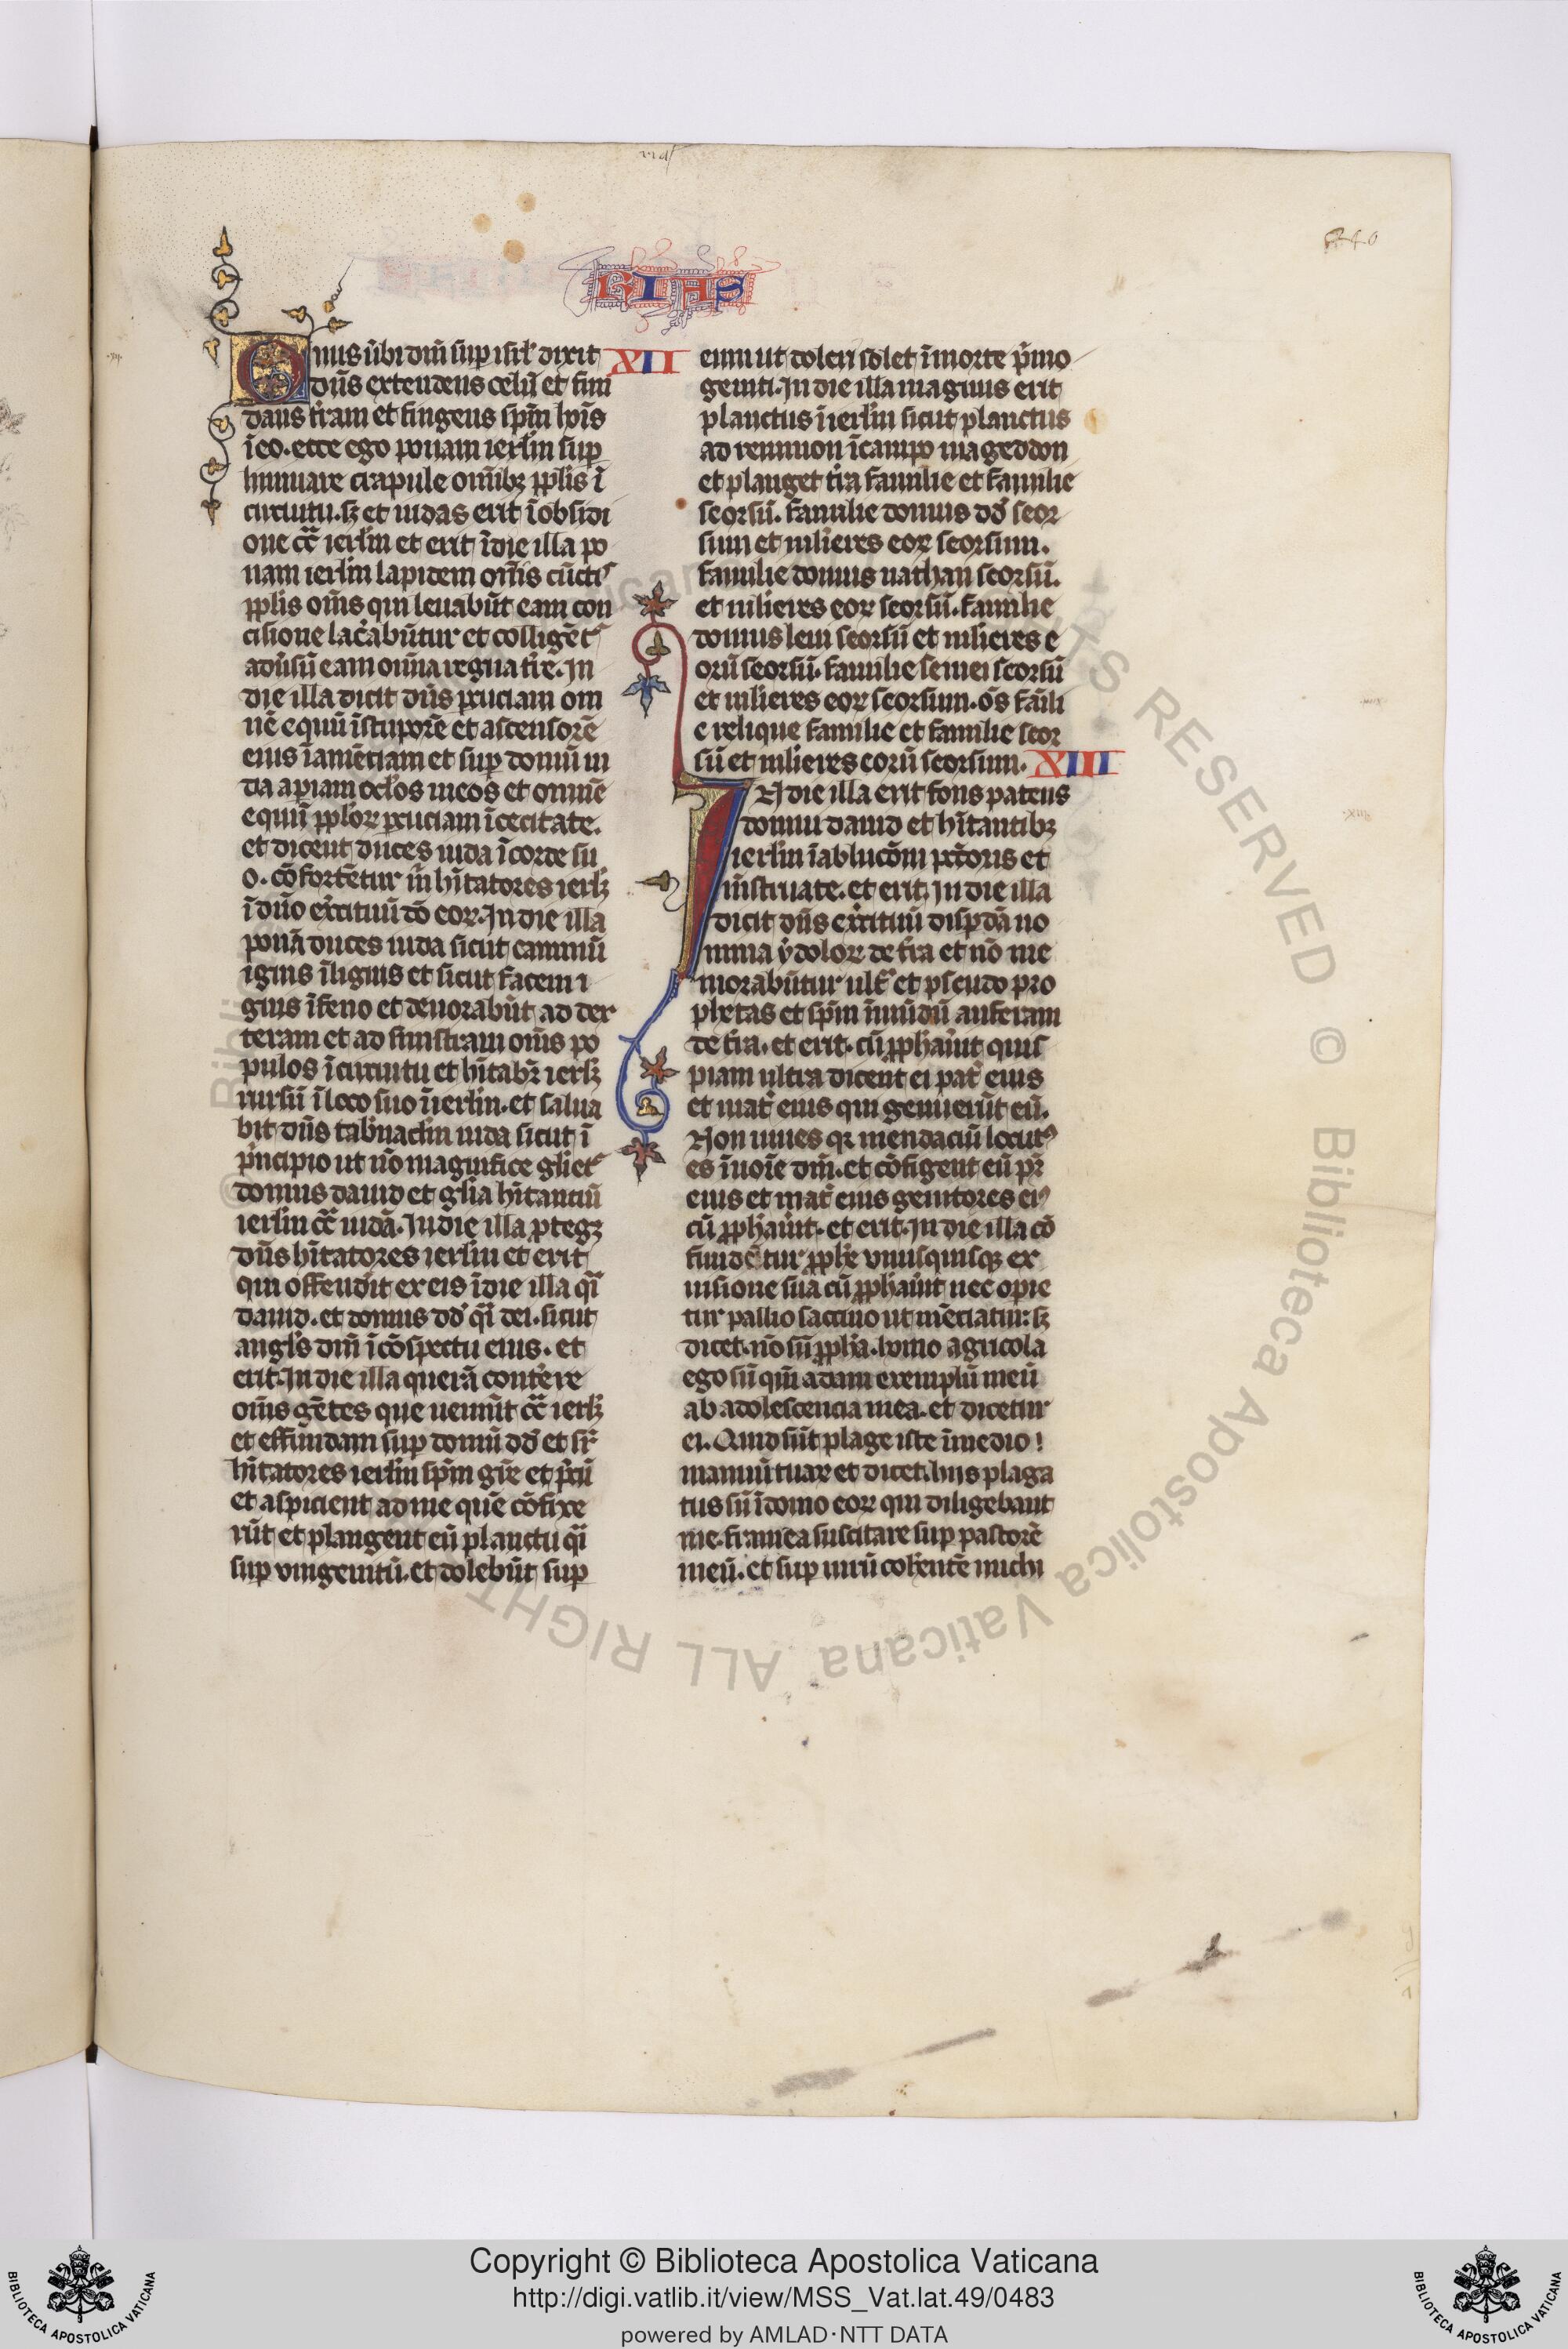 RIAS
240
Onus ũbi dñi sup isrł dixit XII
dñs extendens celũ et fun
dans t̃ram et fingens sp̃m hoĩs
ĩ eo. ecce ego ponam ierłm sup
liminare crapule om̃ibꝫ ppl̃is ĩ
circuitu. sꝫ et iudas erit ĩ obsidi
one cõt̃ ierłm et erit ĩ die illa po
nam ierłm lapidem on̾is cũctis
ppl̃is om̃s qui leuabũt eam con
cisione lac̾abũtur et colligẽt᷑
adũsũ eam omĩa regna t̃re. In
die illa dicit dñs ꝑcuciam om
nẽ equũ ĩ stuporẽ et ascensorẽ
eius ĩ amẽciam et sup domũ iu
da aꝑiam oclos meos et omnẽ
equũ ppl̃oꝝ ꝑcuciam ĩ cecitate.
et dicent duces iuda ĩ corde su
o. cõfortẽtur m̃ hĩtatores ierłꝫ
ĩ dño ex̾cituũ dõ eoꝝ. In die illa
ponã duces iuda sicut caminũ
ignis ĩ lignis et sicut facem i
gnis ĩ feno et deuorabũt ad dex
teram et ad sinistram om̃s po
pulos ĩ circuitu et hĩtabit᷑ ierłꝫ
rursũ ĩ loco suo ĩ ierłm. et salua
bit dñs tab̾nacłm iuda sicut ĩ
p̾ncipio ut nõ magnifice gliet᷑
domus dauid et glĩa hĩtantiũ
ierłm cõt̃ iudã. In die illa ꝓtegꝫ
dñs hĩtatores ierłm et erit
qui offend̾it ex eis ĩ die illa qͣi
dauid. et domus dd̾ qͣi dei. sicut
angl̃s dñi ĩ cõspectu eius. et
erit. In die illa querã cont̾ere
om̃s gẽtes que ueniũt cõt̃ ierłꝫ
et effundam sup domũ dd̾ et sr̃
hĩtatores ierłm sp̃m gr̃e et p̃cũ
et aspicient ad me quẽ cõfixe
rũt et plangent eũ planctu qͣi
sup vnigenitũ. et dolebũt sup
eum ut doleri solet ĩ morte p̾mo
geniti. In die illa magnus erit
planctus ĩ ierłm sicut planctus
adremmon ĩ campo mageddon
et planget t̃ra familie et familie
seorsũ. familie domus dd̾ seor
sum et mlieres eoꝝ seorsum.
familie domus nathan seorsũ.
et mlieres eoꝝ seorsũ. familie
domus leui seorsũ et mlieres e
orũ seorsũ. familie semei seorsũ
et mlieres eoꝝ seorsum. õs fãili
e relique familie et familie seor
sũ et mlieres eorũ seorsum. XIII
IN die illa erit fons patens
domui dauid et hĩtantibꝫ
ierłm ĩ ablucõm pc̃toris et
m̃struate. et erit. In die illa
dicit dñs ex̾cituũ disꝑdã no
mina ẏdoloꝝ de t̃ra et nõ me
morabũtur ult᷑ et pseudo pro
phetas et sp̃m ĩmũdũ auferam
de t̃ra. et erit. cũ pph̾au̾it quis
piam ultra dicent ei pat᷑ eius
et mat᷑ eius qui genuerũt eũ.
Non uiues qꝛ mendaciũ locutꝰ
es ĩ noĩe dñi. et cõfigent eũ pr̃
eius et mat᷑ eius genitores eiꝰ
cũ pph̾au̾it. et erit. In die illa cõ
fundẽtur pph̾e vnusquisqꝫ ex
uisione sua cũ pph̾au̾it nec opie
tur pallio saccino ut mẽciatur: sꝫ
dicet. nõ sũ pph̾a. homo agricola
ego sũ qm̃ adam exemplũ meũ
ab adolescencia mea. et dicetur
ei. Quid sũt plage iste ĩ medio
manuũ tuaꝝ et dicet. hiis plaga
tus sũ ĩ domo eoꝝ qui diligebant
me. framea suscitare sup pastorẽ
meũ. et sup uirũ coh̾entẽ michi
Copyright © Biblioteca Apostolica Vaticana
http://digi.vatlib.it/view/MSS_Vat.lat.49/0483
powered by AMLAD·NTT DATA
BIBLIOTECA APOSTOLICA VATICANA
BIBLIOTECA APOSTOLICA VATICANA